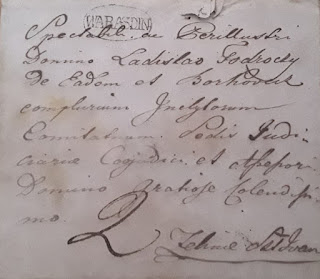 WARASDIN
Spectabili ac Perillustri
Domino Ladislao Fodroczy
de Eadem et
complurium Inclytorum
Comitatuum Sedis Judi
ciariæ Cojudici et Assessori
Domino Gratiose Colendissi
mo.